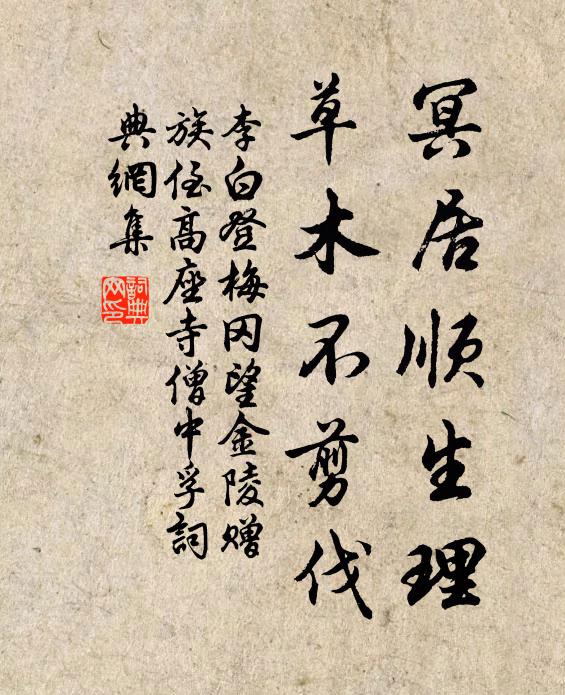 冥居順生理
草木不剪伐
李白登梅冈望金陵赠
族侄高座寺僧中孚詞
典網集
詞典網印